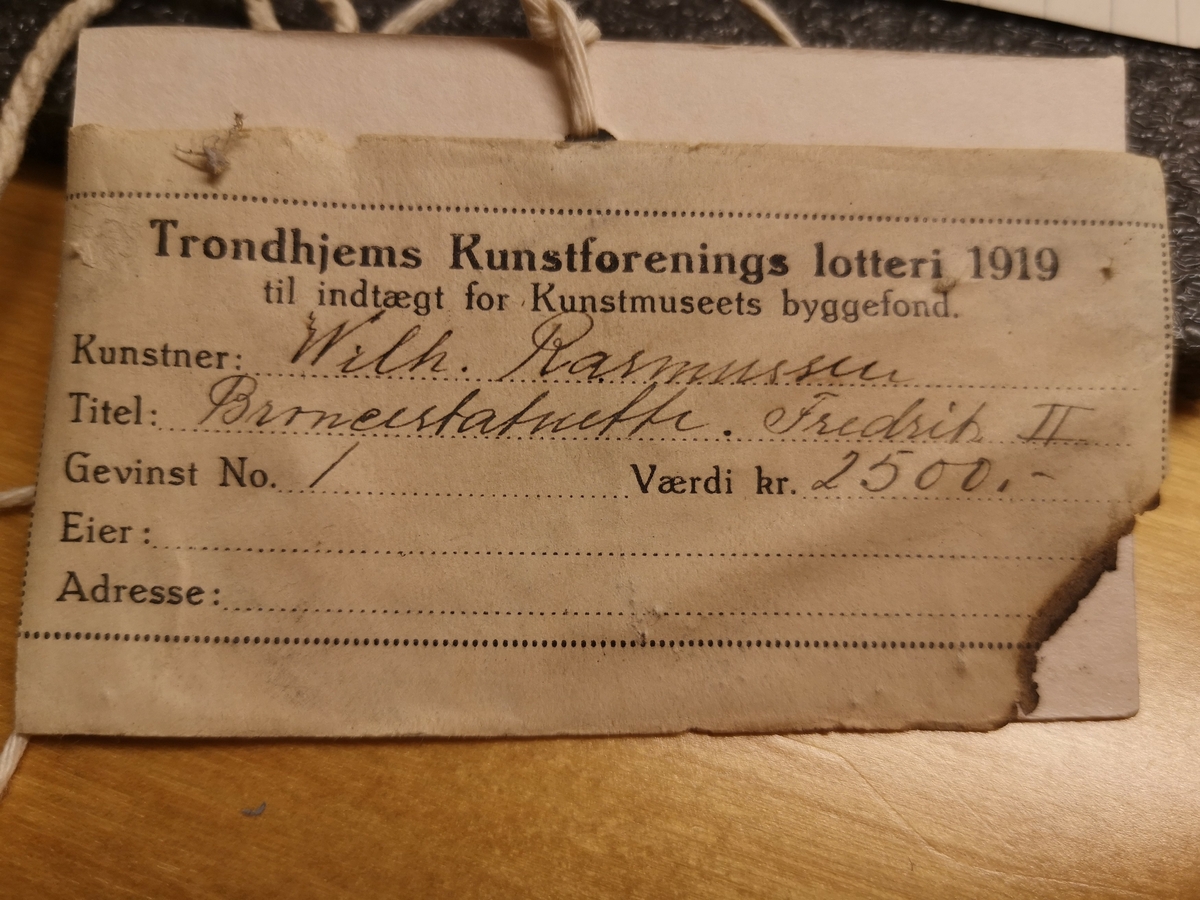 Trondhjems Kunstforenings lotteri 1919
til indtægt for Kunstmuseets byggefond.
Kunstner: Wilh. Rasmussen
Titel: Broncestatuette. Fredrik II
Gevinst No. 1 Værdi kr. 2500.-
Eier:
Adresse: